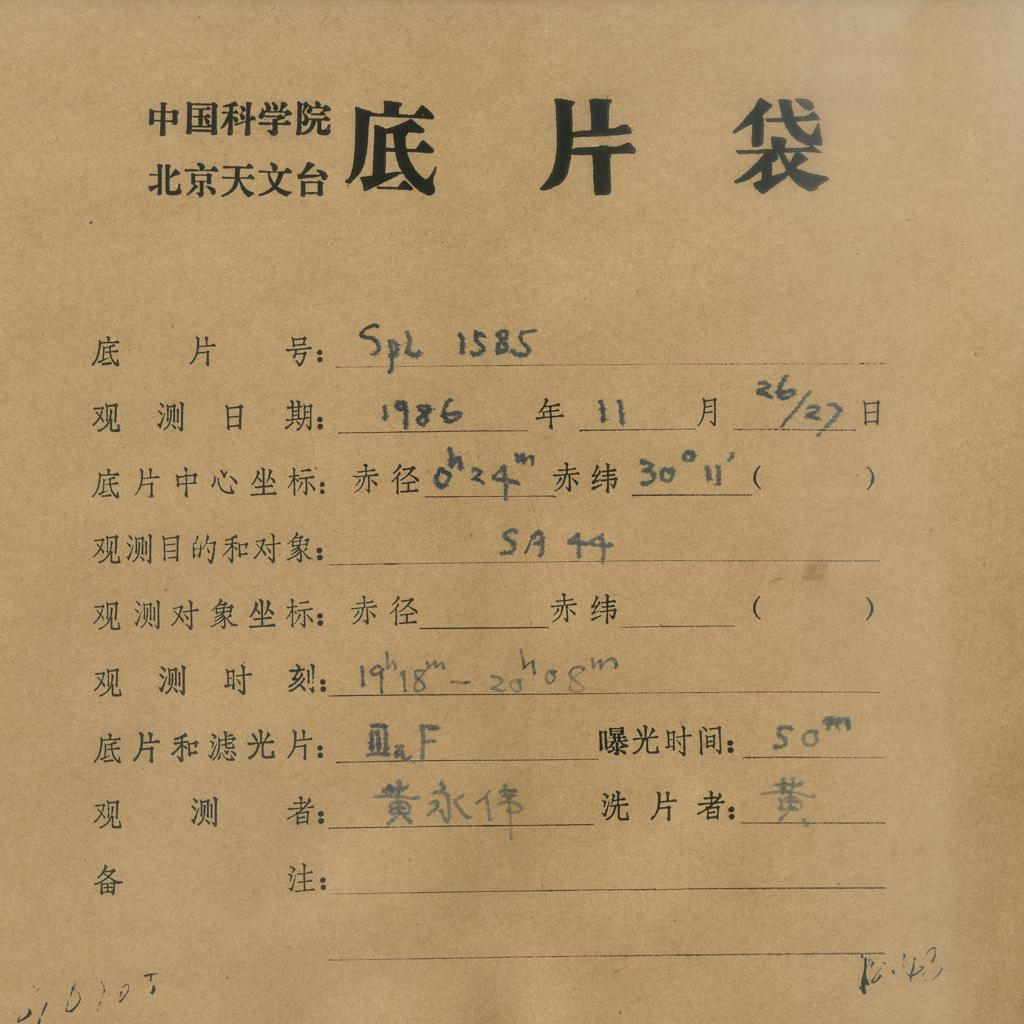 中国科学院
北京天文台
底片袋
底片号: SpL 1585
观测日期: 1986年11月26/27日
底片中心坐标: 赤径 0h24m 赤纬 30°11′( )
观测目的和对象: SA 44
观测对象坐标: 赤径 赤纬 ( )
观测时刻: 19h18m-20h08m
底片和滤光片: ⅢaF 曝光时间: 50m
观测者: 黄永伟 洗片者: 黄
备注: